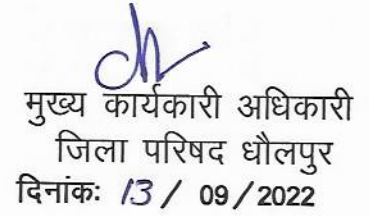 मुख्य कार्यकारी अधिकारी
जिला परिषद धौलपुर
दिनांकः 13 / 09 / 2022